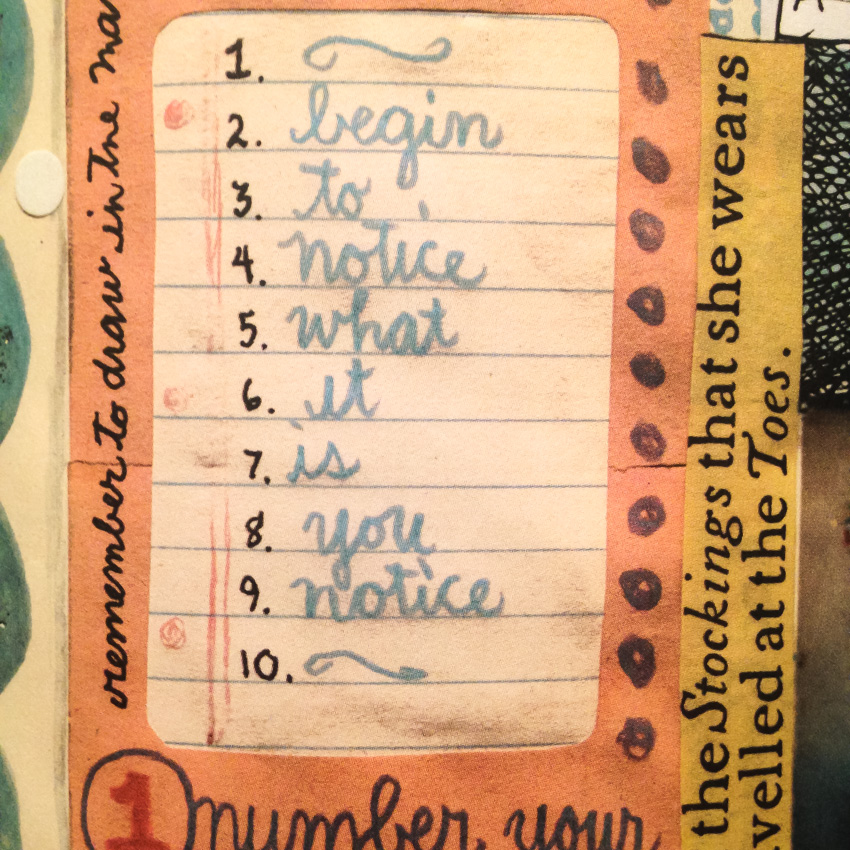 remember to draw in the
1.
2. begin
3. to
4. notice
5. what
6. it
7. is
8. you
9. notice
10.
1 number your
the Stockings that she wears
velled at the Toes.